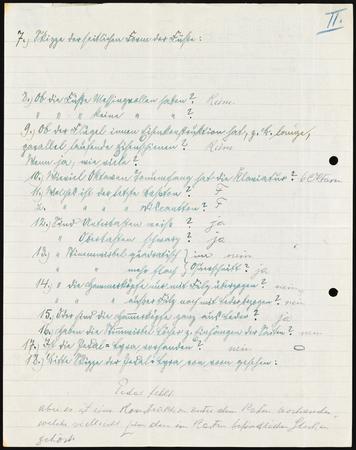 II.
7.) Skizze der seitlichen Form der Füße:
8.) Ob die Füße Messingrollen haben? Keine.
" " " keine " " ?
9.) Ob der Flügel innen Eisenkonstruktion hat, z. B. lange,
parallel laufende Eisenschienen? Keine
Wenn ja, wie viele?
10.) Wieviel Oktaven Tonumfang hat die Klaviatur? 6 Oktaven
11.) Welches ist der letzte Baßton? F
2. " " " " Diskantton? F
12.) Sind Untertasten weiß? ja
" Obertasten schwarz? ja
13.) " Stimmwirbel quadratisch } im nein
" " mehr flach } Querschnitt? ja
14.) " die Hammerköpfe nur mit Filz überzogen? nein
" " " außer Filz noch mit Lederbezogen? nein
15.) Oder sind die Hammerköpfe ganz aus Leder? ja
16.) Haben die Stimmwirbel Löcher z. Einhängen der Saiten? nein
17.) Ist die Pedal-Lyra vorhanden? nein
18.) Bitte Skizze der Pedal-Lyra von vorn gesehen:
Pedal fehlt.
aber es ist eine Konstruktion unter dem Kasten vorhanden,
welche vielleicht zu den im Kasten befindlichen Glocken
gehört